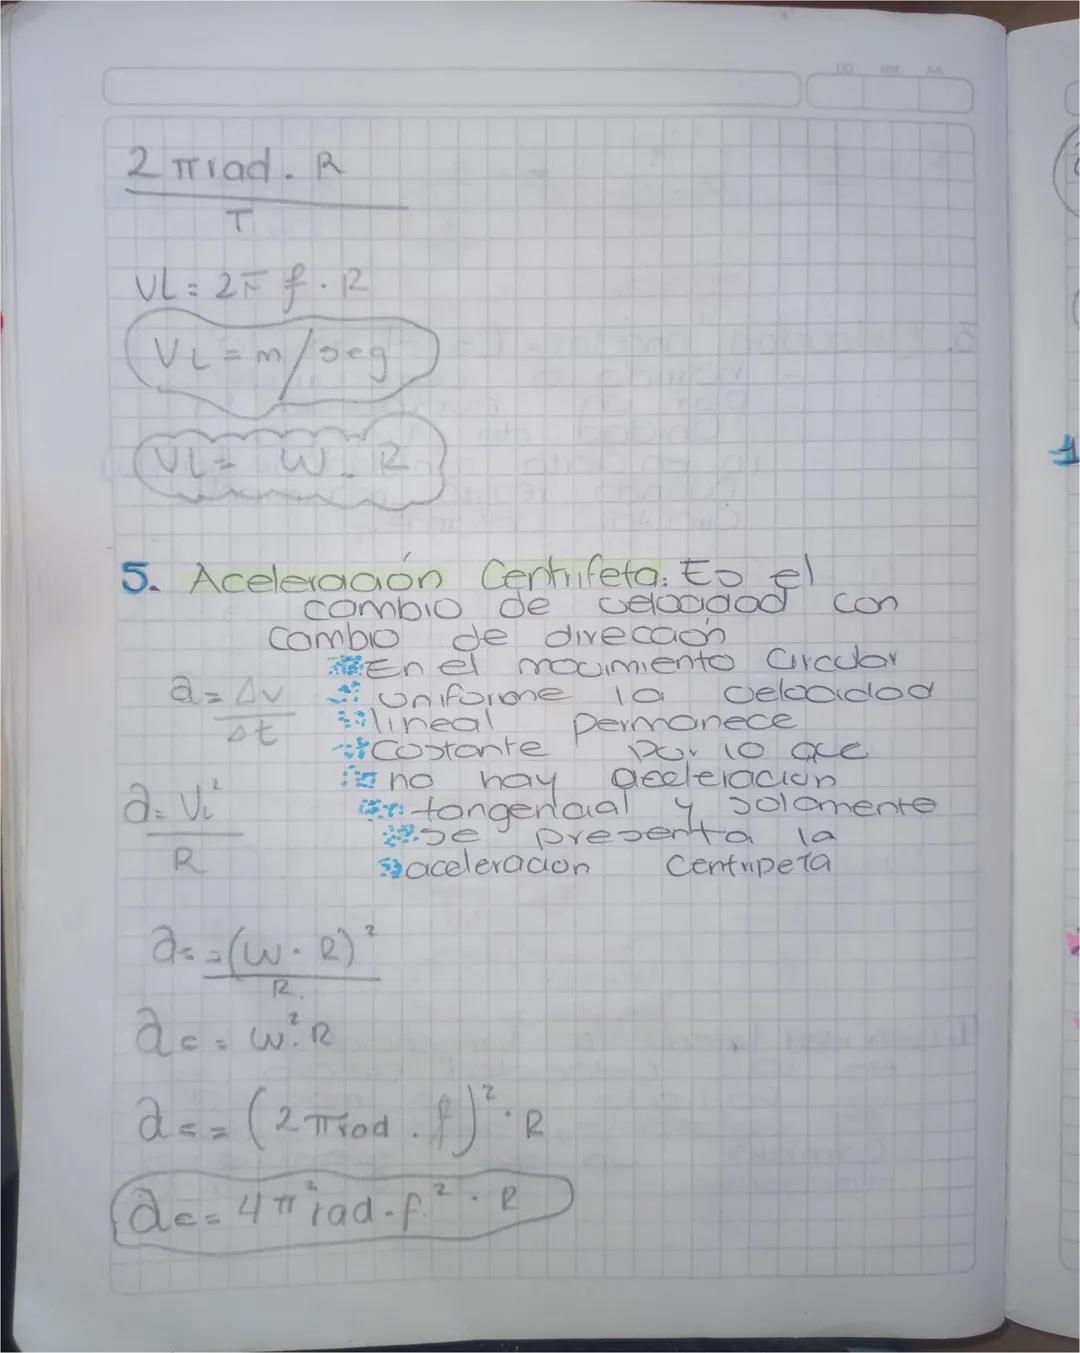 DD MM AA
2 πrad . R
T
VL = 2π f . R
VL = m/seg
VL = W . R
5. Aceleración Centrifeta. Es el
cambio de velocidad con
cambio de dirección
En el movimiento circular
a = Δv uniforme la velocidad
Δt lineal permanece
costante por lo que
no hay aceleración
a = VL² tangencial y solamente
R se presenta la
aceleracion centripeta
ac = (W . R)²
R.
ac = W² . R
ac = (2 πrad . f)² . R
ac = 4π² rad . f² . R
1